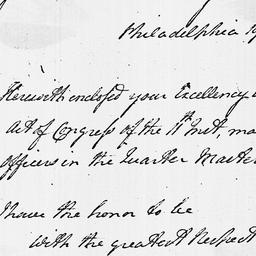 Philadelphia 19
Herewith enclosed your Excellency
Act of Congress of the 11th Inst, ma
Officers in the Quarter Master
I have the honor to be
With the greatest Respect